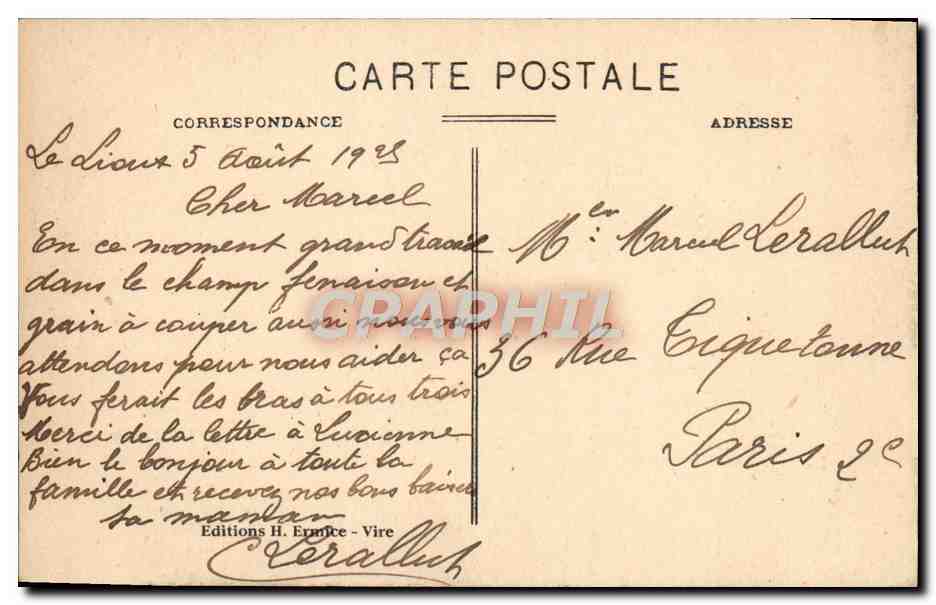 CARTE POSTALE
CORRESPONDANCE
ADRESSE
Le Lioux 5 Août 19
Cher Marcel
En ce moment grand travail
dans le champ fenaison et
grain à couper aussi nous vous
attendons pour nous aider ça
Vous ferait les bras à tous trois
Merci de la lettre à Lucienne
Bien le bonjour à toute la
famille et recevez nos bons baisers
ta maman
Lerallut
Editions H. Ermice - Vire
Mr : Marcel Lerallut
36 Rue Tiquetonne
Paris 2e
CPAPHIL